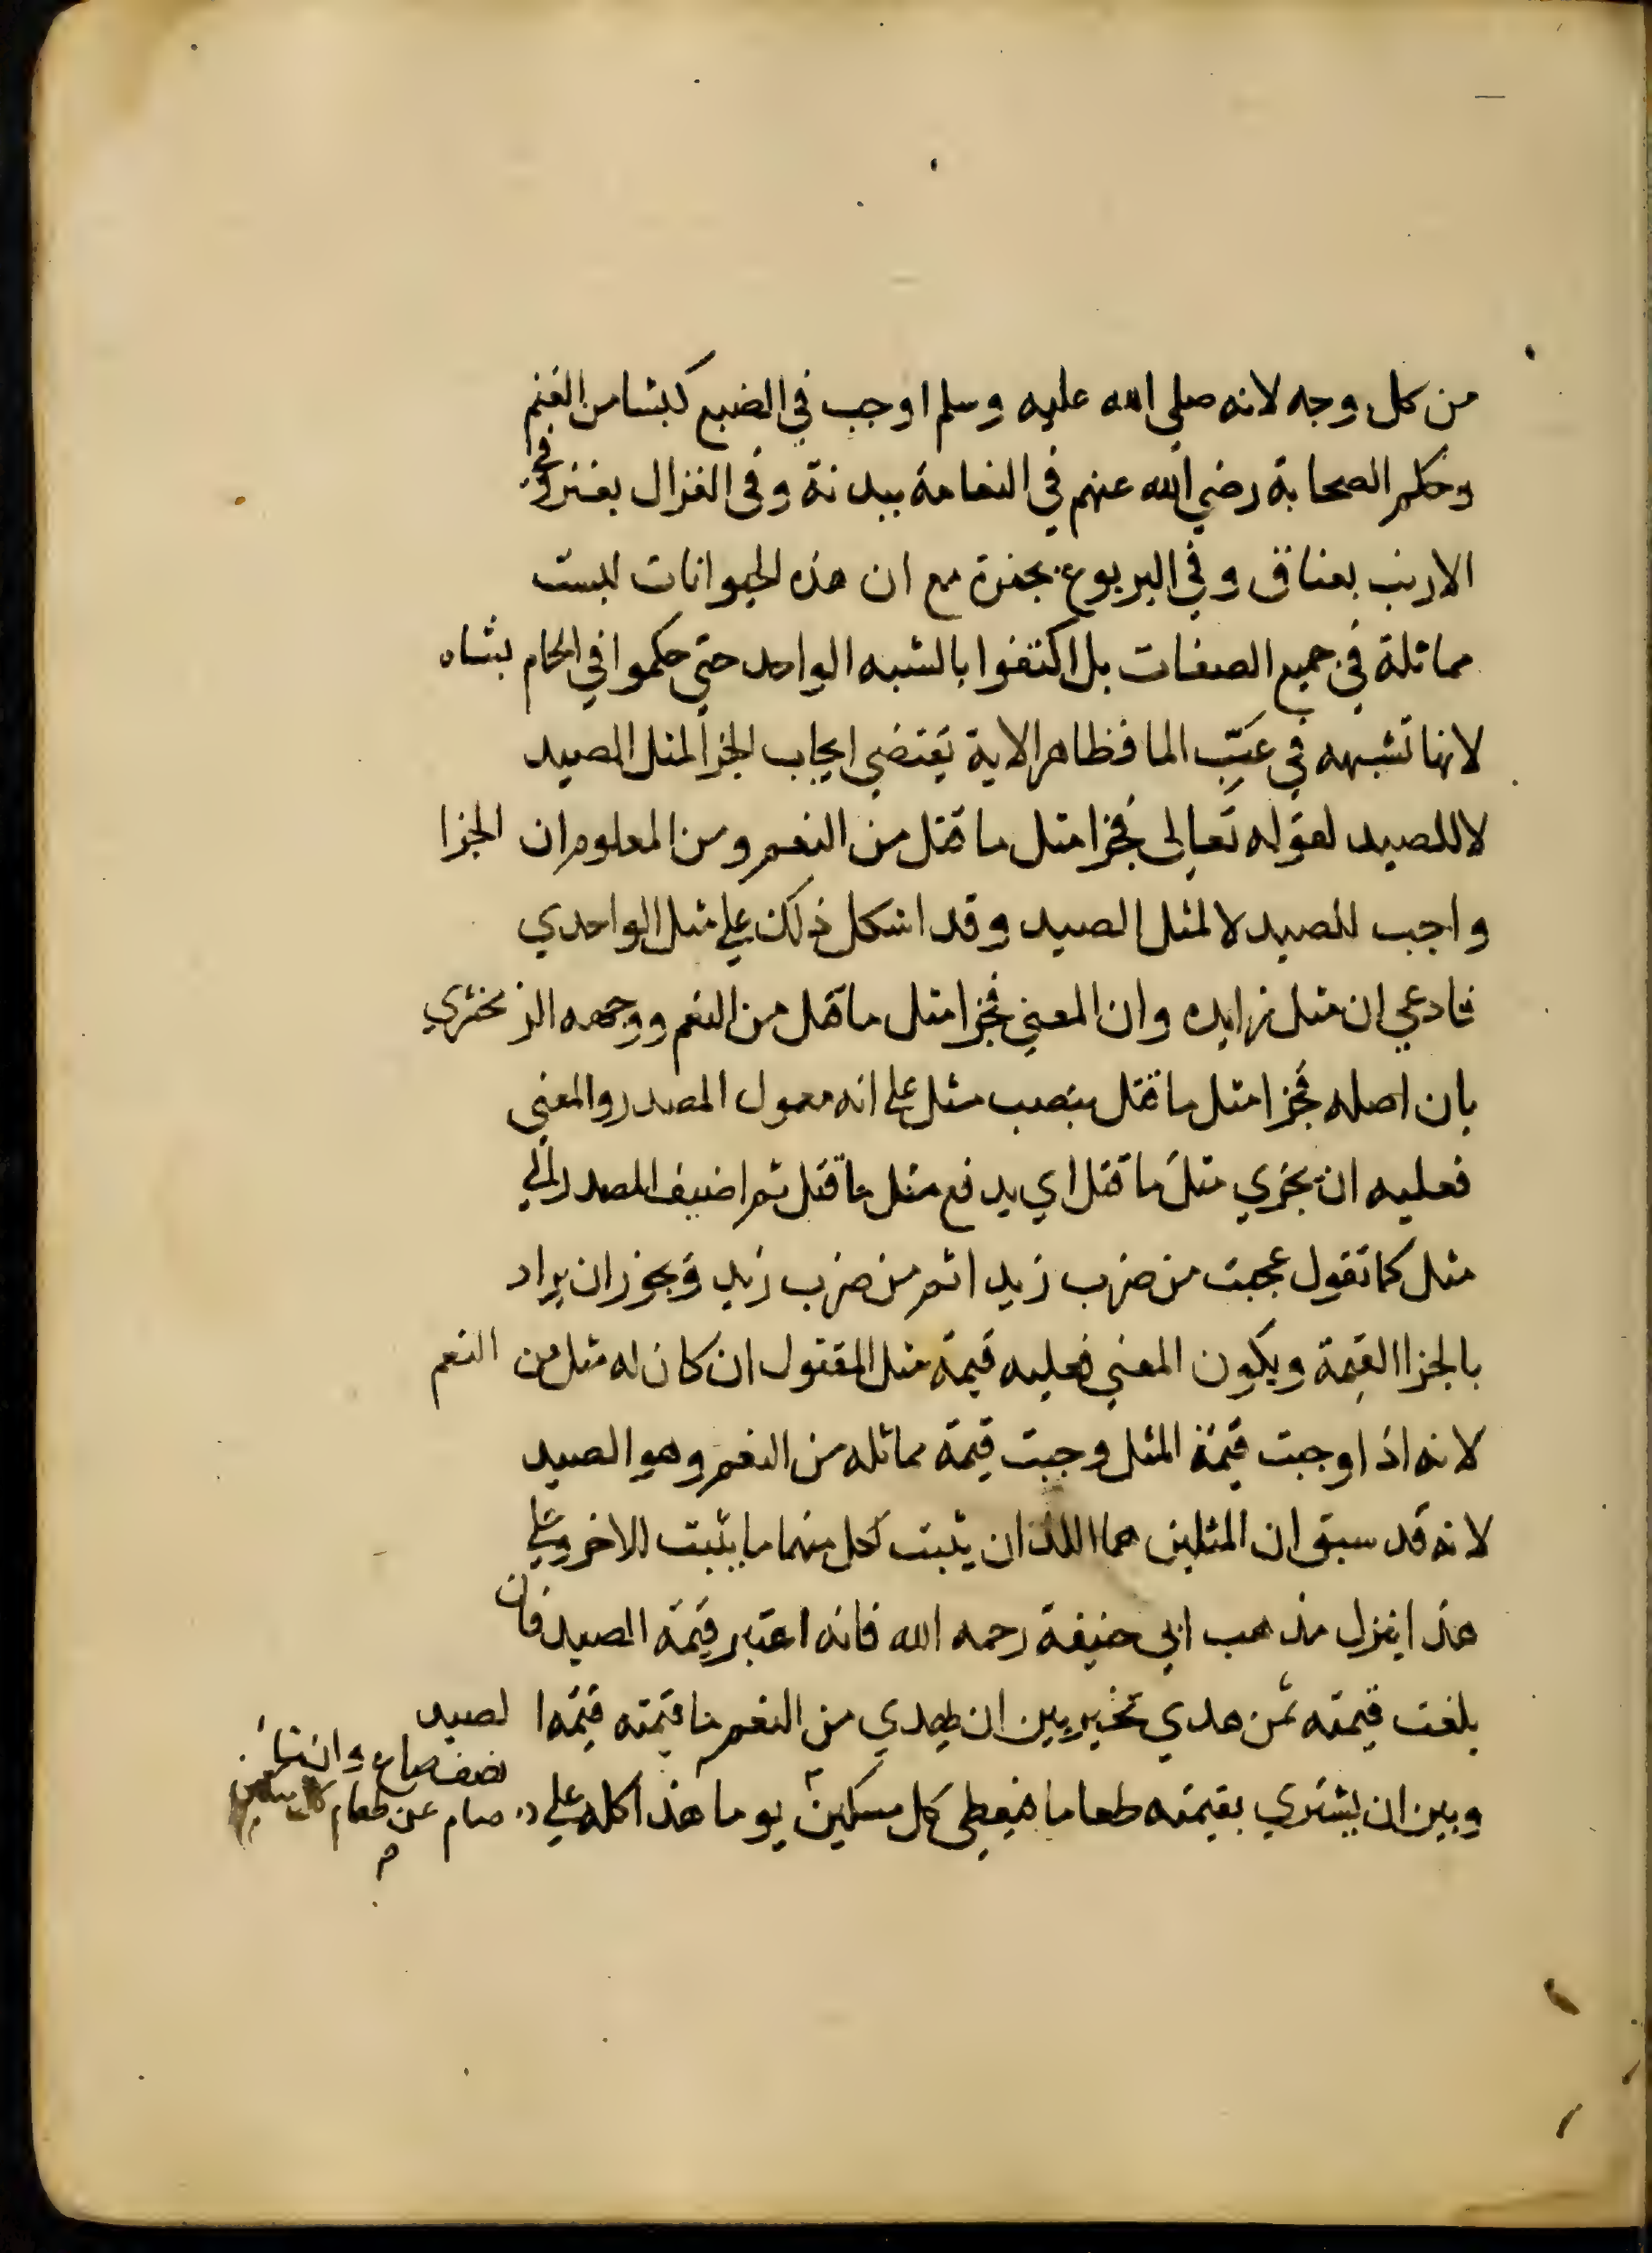 من كل وجه لانه صلي الله عليه وسلم اوجب في الضبع كبشا من الغنم
وحكم الصحابة رضي الله عنهم في النعامة ببدنة وفي الغزال بعنز وفي
الارنب بعناق وفي اليربوع بجفرة مع ان هذه الحيوانات ليست
مماثلة في جميع الصفات بل اكتفوا بالشبه الواحد حتي حكموا في الحمام بشاه
لانها تشبهه في عبّ الما فظاهر الاية يقتضي ايجاب الجزا لمثل الصيد
لا للصيد لقوله تعالى فجزا مثل ما قتل من النعم ومن المعلوم ان الجزا
واجب للصيد لا لمثل الصيد وقد اشكل ذلك علي مثل الواحدي
فادعي ان مثل زايده وان المعني فجزا مثل ما قتل من النعم ووجهه الزمخشري
بان اصله فجزا مثل ما قتل بنصب مثل علي انه معمول المصدر والمعني
فعليه ان يجزي مثل ما قتل اي يدفع مثل ما قتل ثم اضيف المصدر الي
مثل كما تقول عجبت من ضرب زيدا ثم من ضرب زيد ويجوز ان يراد
بالجزا القيمة ويكون المعني فعليه قيمة مثل المقتول ان كان له مثل من النعم
لانه اذا وجبت قيمة المثل وجبت قيمة مماثله من النعم وهو الصيد
لانه قد سبق ان المثلين هما اللذان يثبت لكل منهما ما يثبت للاخر وعلي
هذا ينزل مذهب ابي حنيفة رحمه الله فانه اعتبر قيمة الصيد فان
بلغت قيمته ثمن هدي تخير بين ان يهدي من النعم ما قيمته قيمة الصيد
وبين ان يشتري بقيمته طعاما فيعطي كل مسكين يوما هذا كله علي
نصف صاع وان شا
صام عن طعام كل مسكين